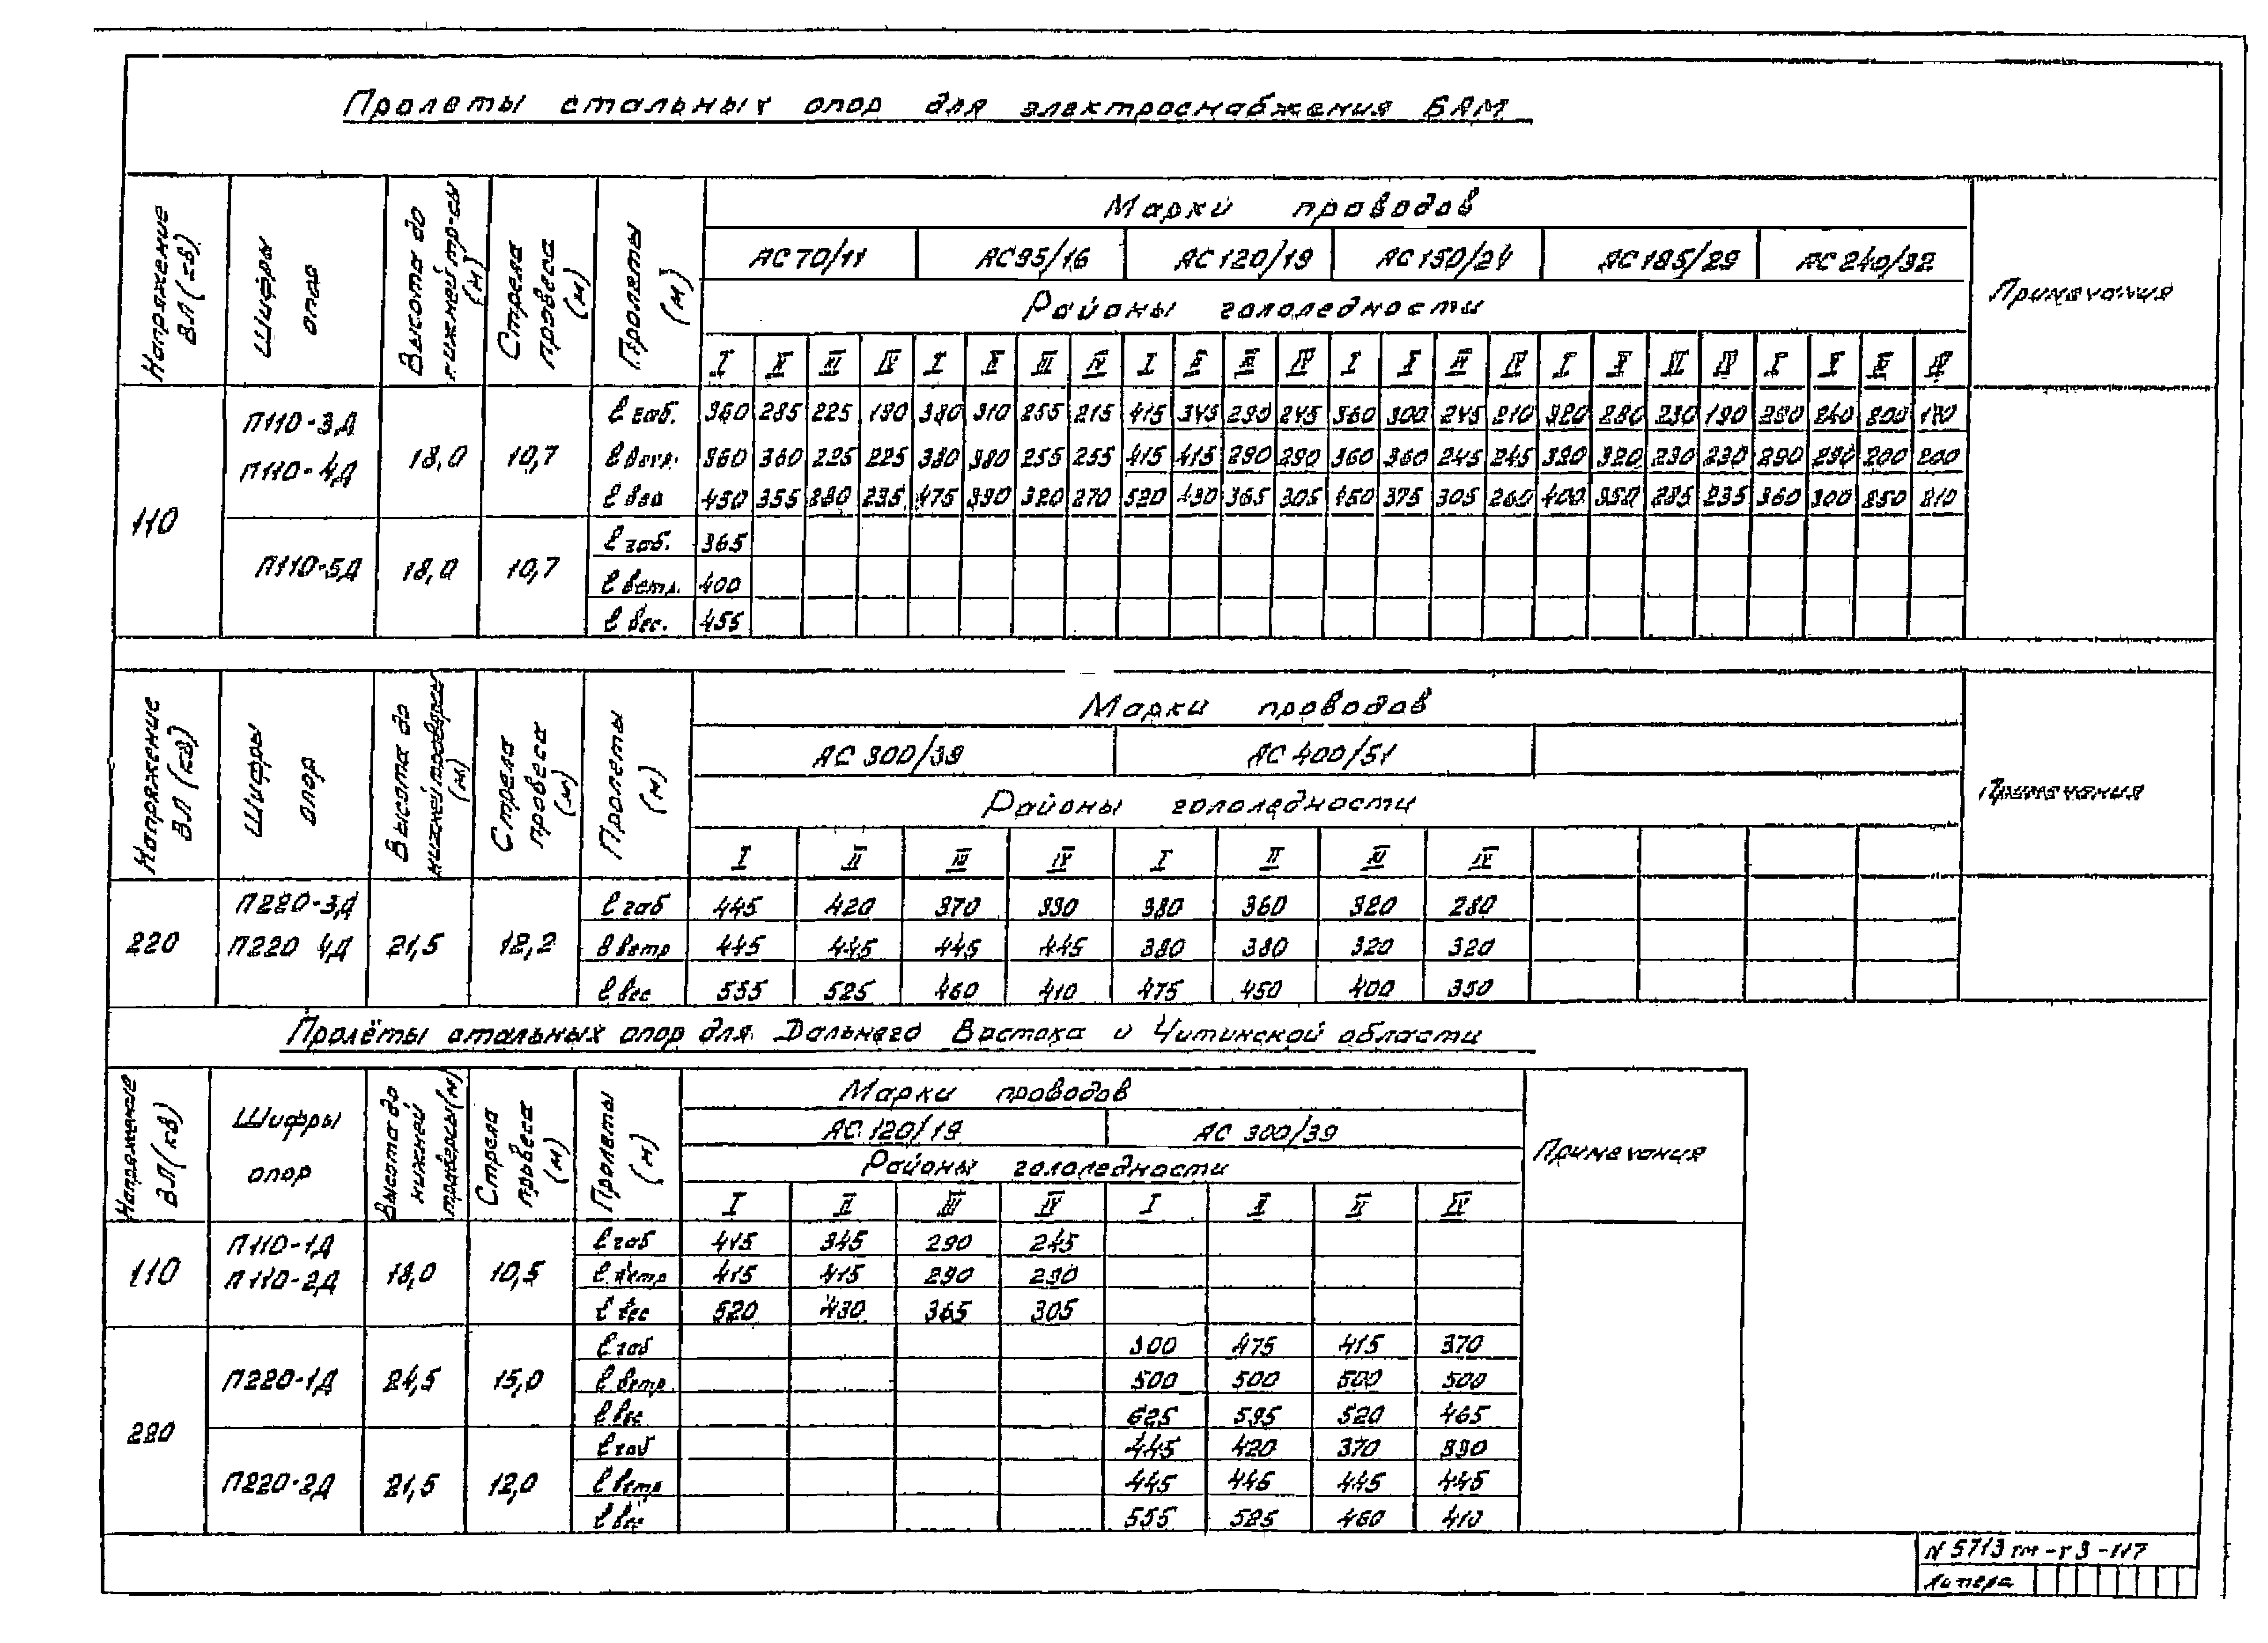 Пролеты стальных опор для электроснабжения БАМ
Напряжение ВЛ (кв)
Шифры опор
Высота до нижней тр-сы (м)
Стрела провеса (м)
Пролеты (м)
Марки проводов
Примечания
АС 70/11 АС 95/16 АС 120/19 АС 150/24 АС 185/29 АС 240/32
Районы гололедности
I II III IV I II III IV I II III IV I II III IV I II III IV I II III IV
110
П110-3Д
П110-4Д
18,0 10,7
l габ. 360 285 225 190 380 310 255 215 415 345 290 245 360 300 245 210 320 280 230 190 290 240 200 170
l ветр. 360 360 225 225 380 380 255 255 415 415 290 290 360 360 245 245 320 320 230 230 290 290 200 200
l вес 450 355 280 235 475 390 320 270 520 430 365 305 450 375 305 260 400 350 285 235 360 300 250 210
П110-5Д 18,0 10,7
l габ. 365
l ветр. 400
l вес. 455
Напряжение ВЛ (кв)
Шифры опор
Высота до нижней траверсы (м)
Стрела провеса (м)
Пролеты (м)
Марки проводов
Примечания
АС 300/39 АС 400/51
Районы гололедности
I II III IV I II III IV
220
П220-3Д
П220 4Д
21,5 12,2
l габ 445 420 370 330 380 360 320 280
l ветр 445 445 445 445 380 380 320 320
l вес 555 525 460 410 475 450 400 350
Пролёты стальных опор для Дальнего Востока и Читинской области
Напряжение ВЛ (кв)
Шифры опор
Высота до нижней траверсы (м)
Стрела провеса (м)
Пролеты (м)
Марки проводов
Примечания
АС 120/19 АС 300/39
Районы гололедности
I II III IV I II II IV
110
П110-1Д
П110-2Д
18,0 10,5
l габ 415 345 290 245
l ветр 415 415 290 290
l вес 520 430 365 305
220
П220-1Д 24,5 15,0
l габ 500 475 415 370
l ветр 500 500 500 500
l вес 625 595 520 465
П220-2Д 21,5 12,0
l габ 445 420 370 330
l ветр 445 445 445 445
l вес 555 525 460 410
N 5713тм-т3-117
Литера